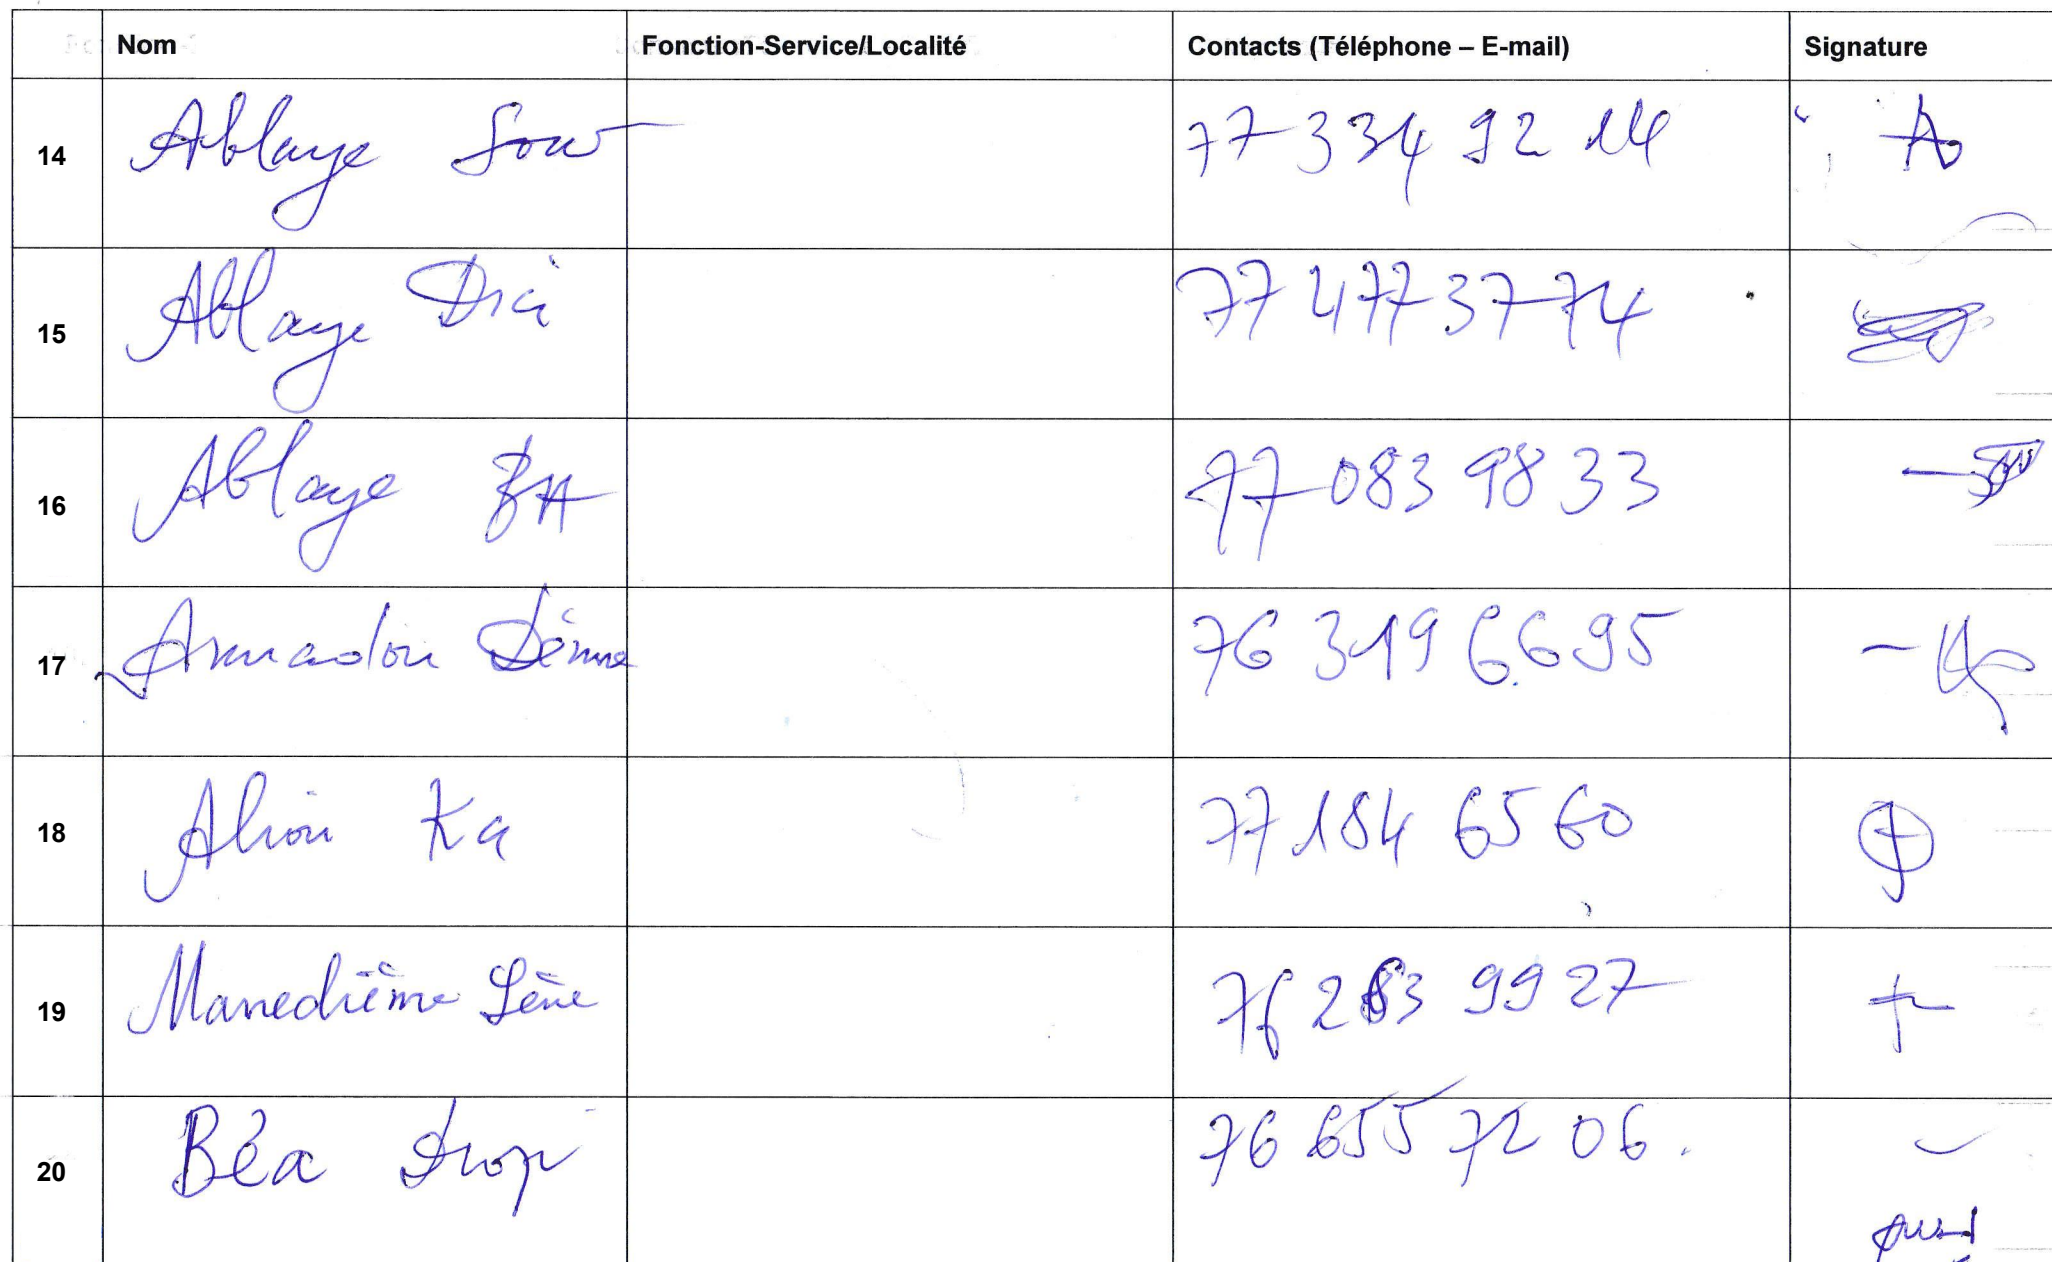 Nom Fonction-Service/Localité Contacts (Téléphone – E-mail) Signature
14 Ablaye Sow 77 334 92 14
15 Ablaye Dia 77 477 37 74
16 Ablaye BA 77 083 98 33
17 Amadou Dème 76 319 66 95
18 Aliou Ka 77 184 65 60
19 76 283 99 27
20 Béa Diop 76 655 72 06.